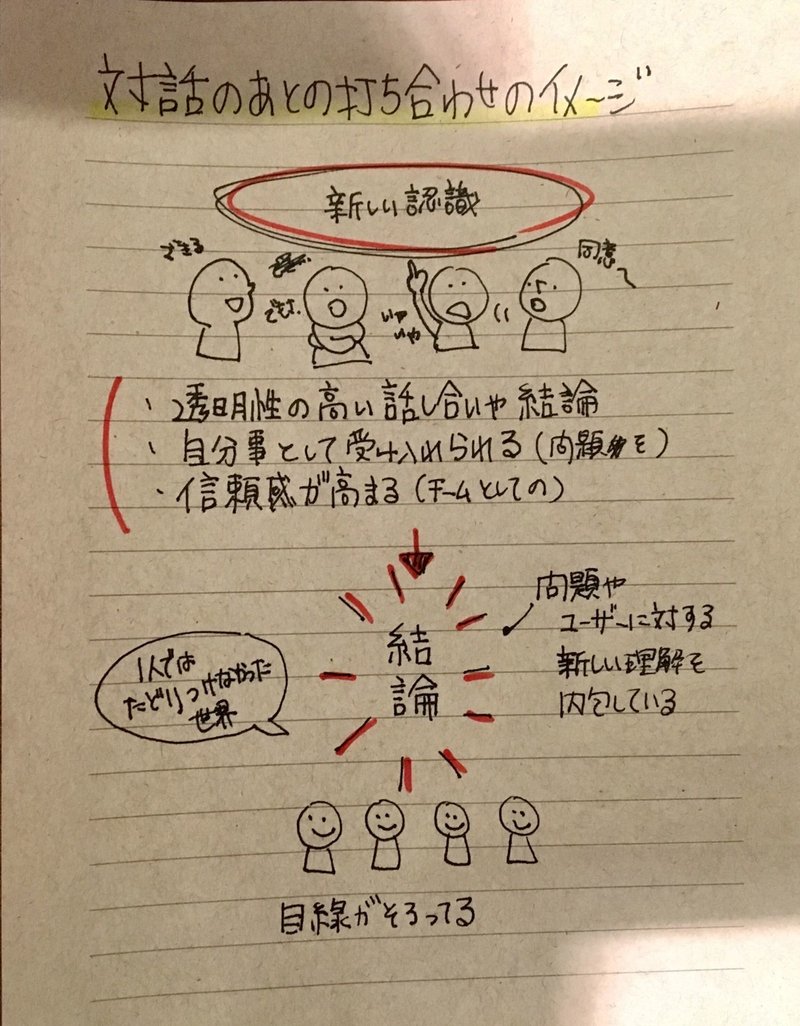 対話のあとの打ち合わせのイメージ
新しい認識
できる
でも、
いや
いや
同意〜
・透明性の高い話し合いや結論
・自分事として受け入れられる(問題を)
・信頼感が高まる(チームとしての)
結
論
問題や
ユーザーに対する
新しい理解を
内包している
1人では
たどりつけなかった
世界
目線がそろってる